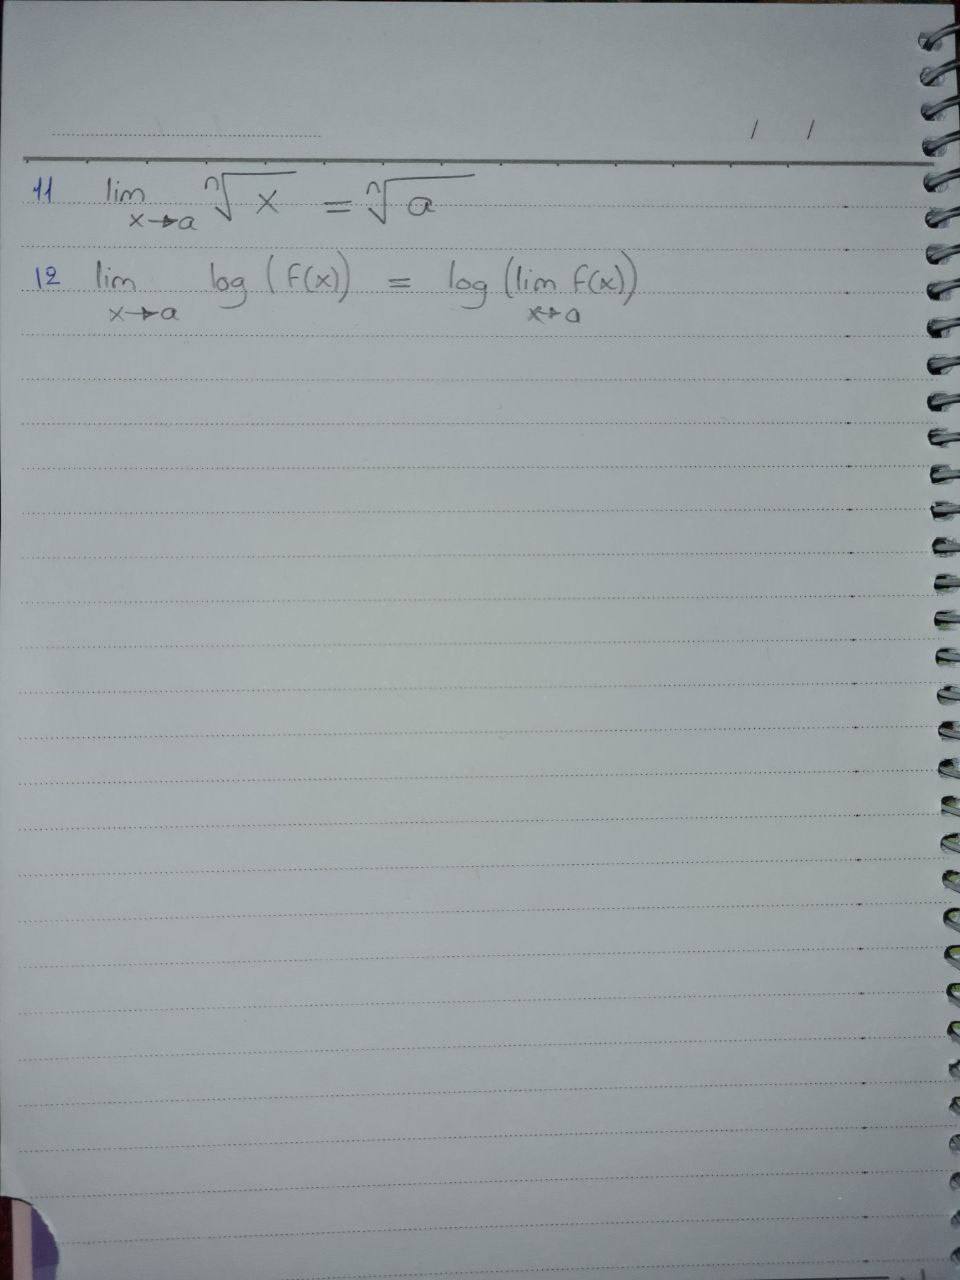 / /
11 lim x→a ⁿ√x = ⁿ√a
12 lim x→a log (f(x)) = log (lim x→a f(x))